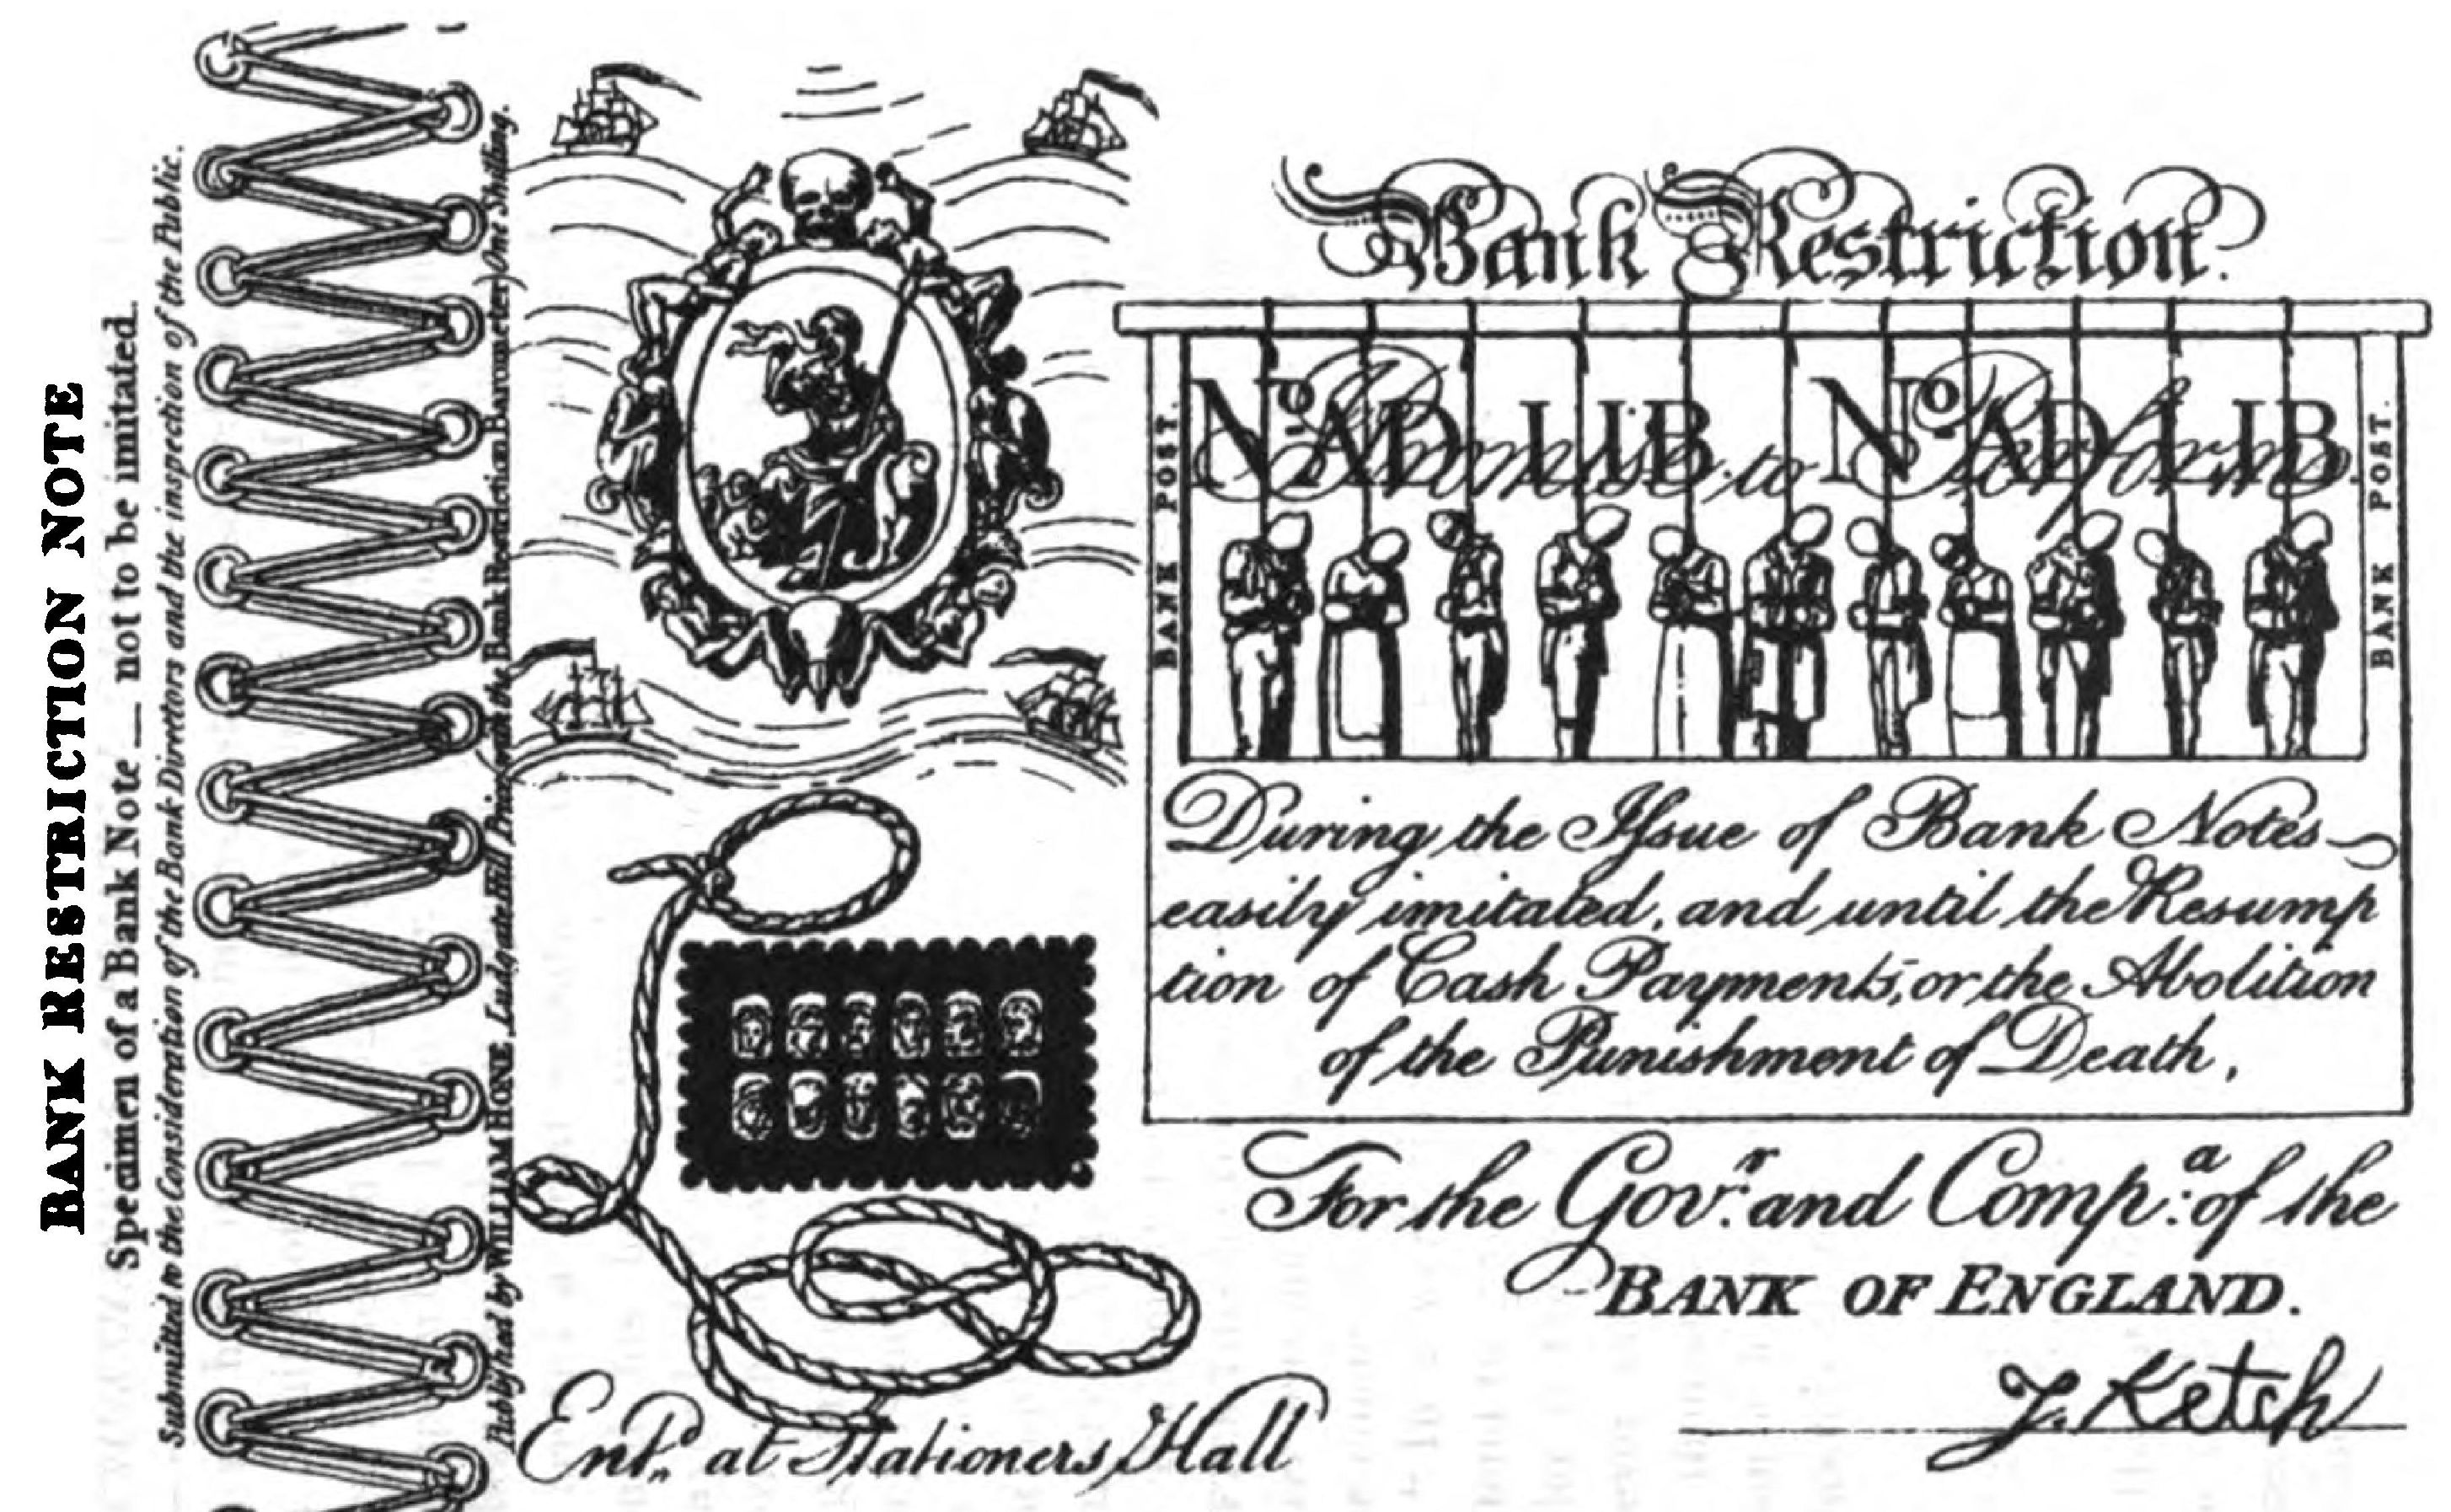 BANK RESTRICTION NOTE
Specimen of a Bank Note — not to be imitated.
Submitted to the Consideration of the Bank Directors and the inspection of the Public.
Published by WILLIAM HONE, Ludgate Hill, Price with the Bank Restriction Barometer, One Shilling.
Bank Restriction.
BANK POST.
No. AD LIB. No. AD LIB.
I Promise to Perform
BANK POST.
During the Issue of Bank Notes
easily imitated, and until the Resump
tion of Cash Payments, or the Abolition
of the Punishment of Death,
For the Gov.r and Comp.a of the
BANK OF ENGLAND.
J. Ketch
Entd. at Stationers Hall